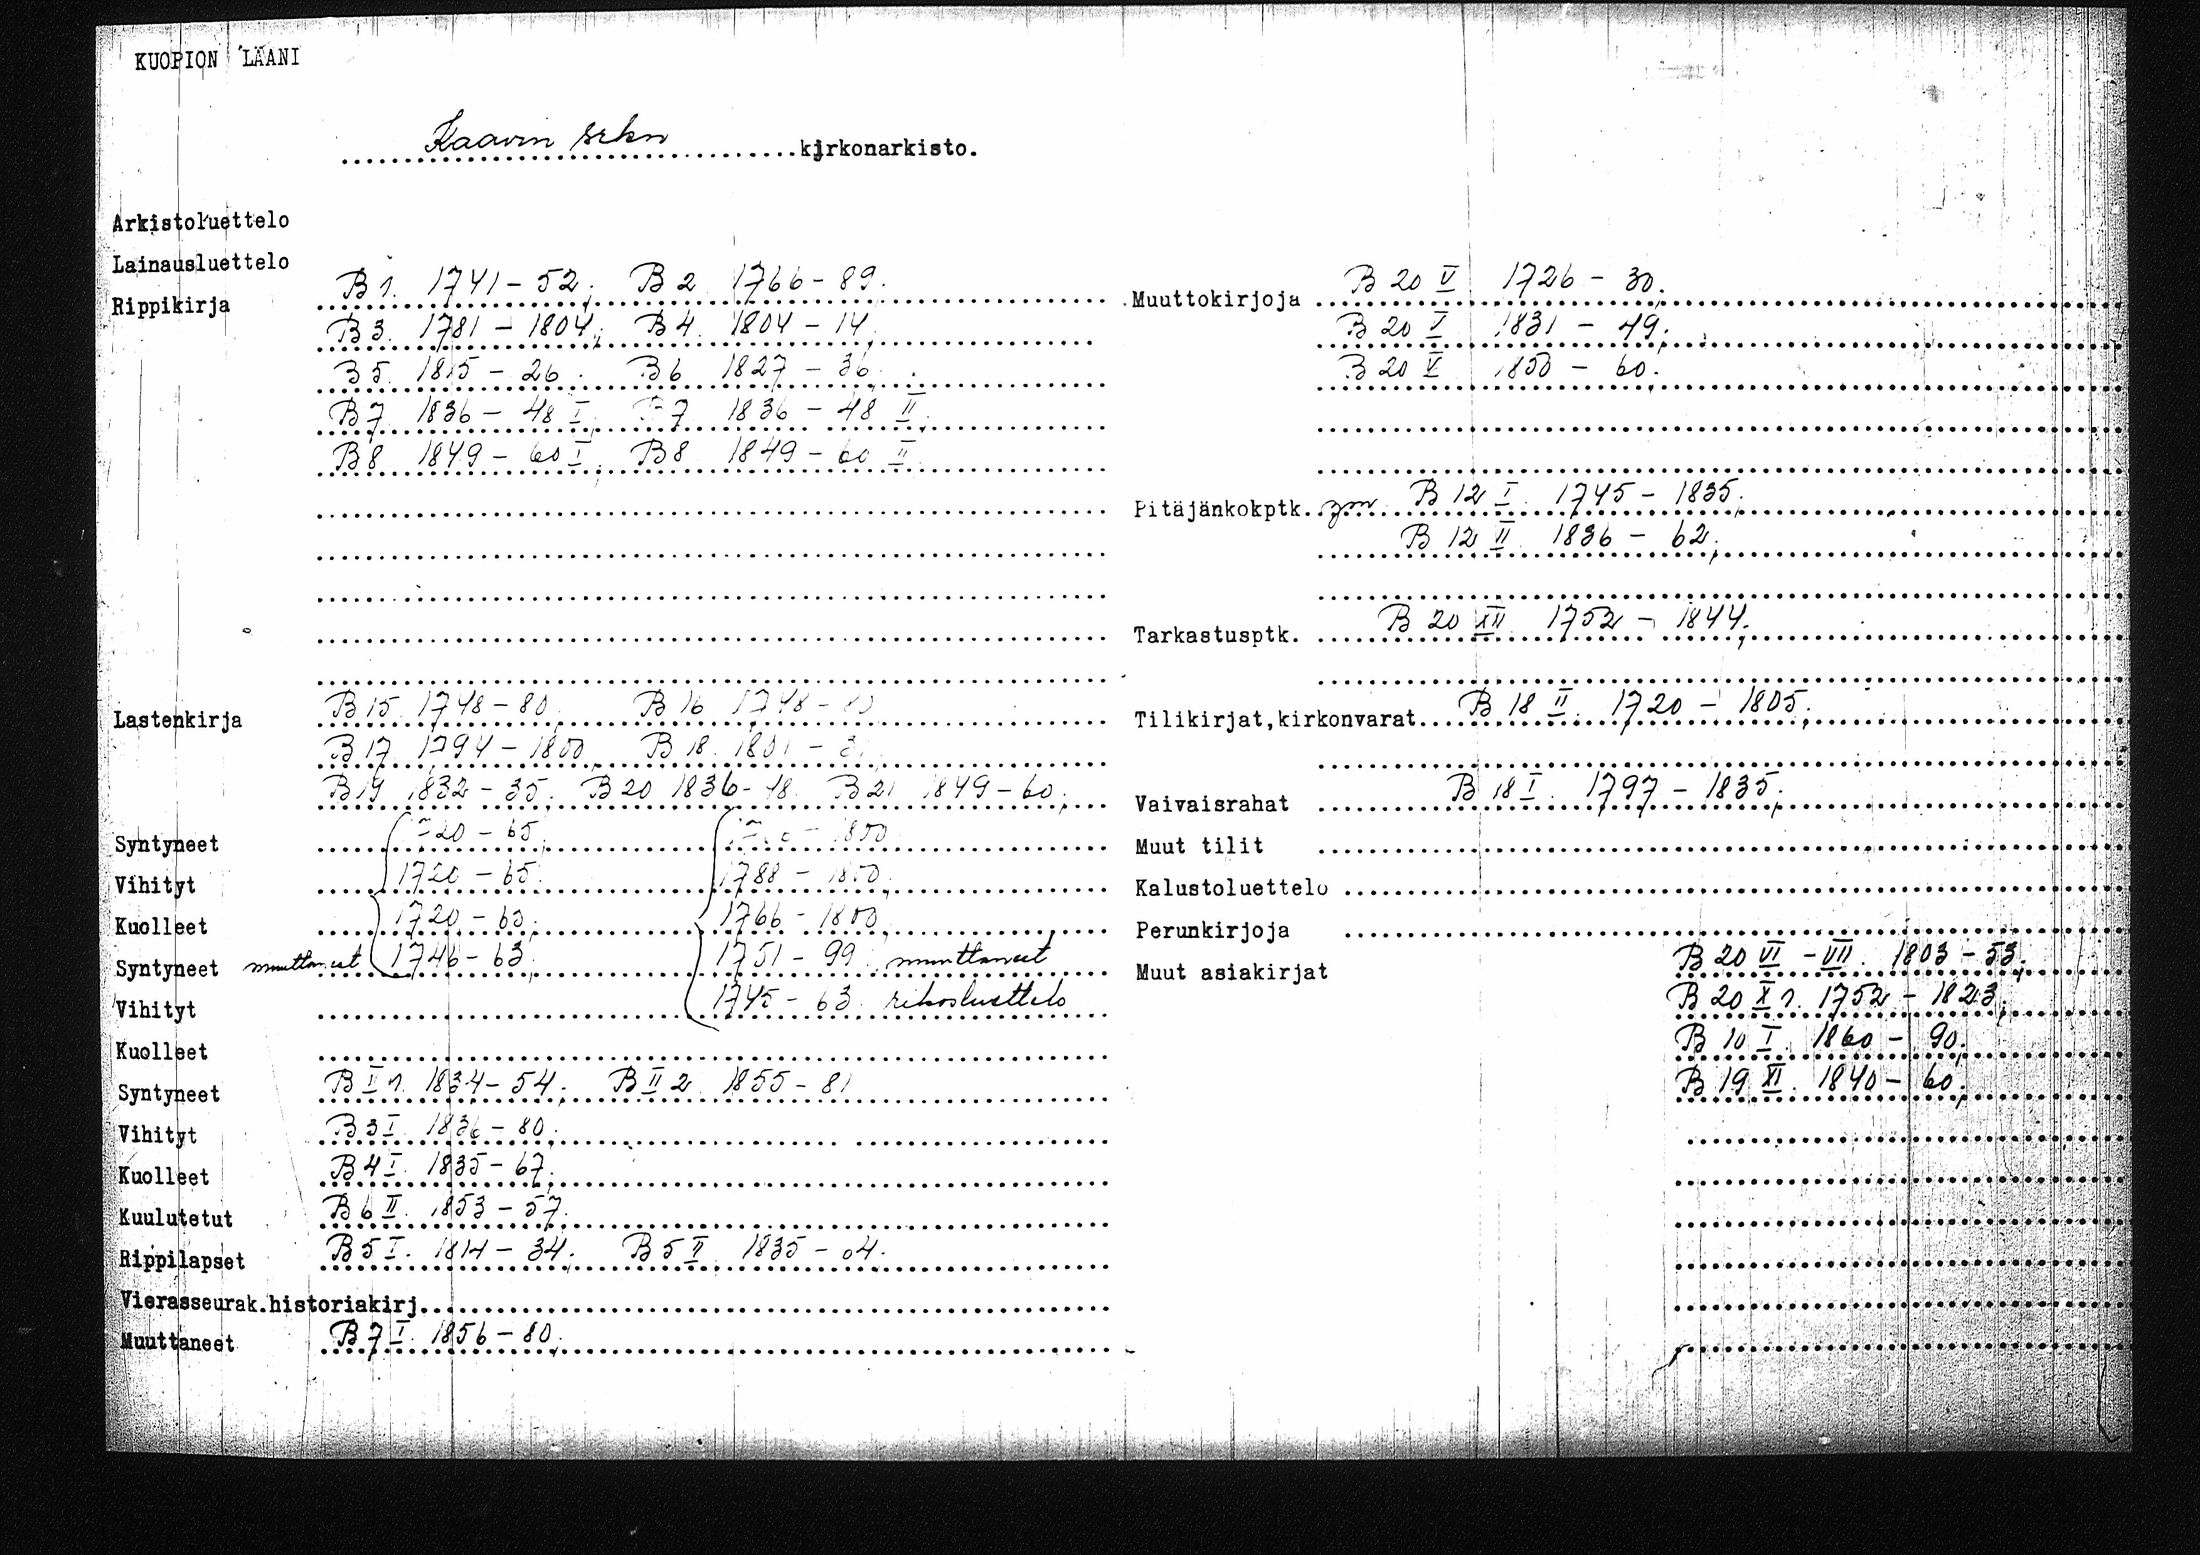 KUOPION LÄÄNI
Kaavin srkn kirkonarkisto.
Arkistoluettelo
Lainausluettelo
Rippikirja B 1. 1741-52; B 2 1766-89.
B 3. 1781-1804; B 4. 1804-14;
B 5. 1815-26. B 6 1827-36.
B 7. 1836-48 I; B 7 1836-48 II;
B 8 1849-60 I; B 8 1849-60 II
Lastenkirja B 15 1748-80; B 16 1748-80
B 17 1794-1800 B 18. 1801-
B 19 1832-35; B 20 1836-48. B 21 1849-60;
Syntyneet 1720-65; 1800
Vihityt 1720-65; 1788-1800;
Kuolleet 1720-63; 1766-1800;
Syntyneet muuttaneet 1746-63; 1751-99 muuttaneet
Vihityt 1745-63 rikosluettelo
Kuolleet
Syntyneet B II 1. 1834-54; B II 2 1855-81
Vihityt B 3 I. 1836-80;
Kuolleet B 4 I. 1835-67;
Kuulutetut B 6 II. 1853-57.
Rippilapset B 5 I. 1814-34; B 5 II. 1835-04.
Vierasseurak.historiakirj.
Muuttaneet B 7 I. 1856-80;
Muuttokirjoja B 20 V 1726-30.
B 20 V 1831-49;
B 20 V 1850-60.
Pitäjänkokptk. ym. B 12 I. 1745-1835;
B 12 II. 1836-62;
Tarkastusptk. B 20 XII. 1752-1844;
Tilikirjat,kirkonvarat B 18 II. 1720-1805;
Vaivaisrahat B 18 I. 1797-1835;
Muut tilit
Kalustoluettelo
Perunkirjoja
Muut asiakirjat B 20 VI-VII. 1803-53;
B 20 X 1. 1752-1823;
B 10 I. 1860-90;
B 19 XI. 1840-60;